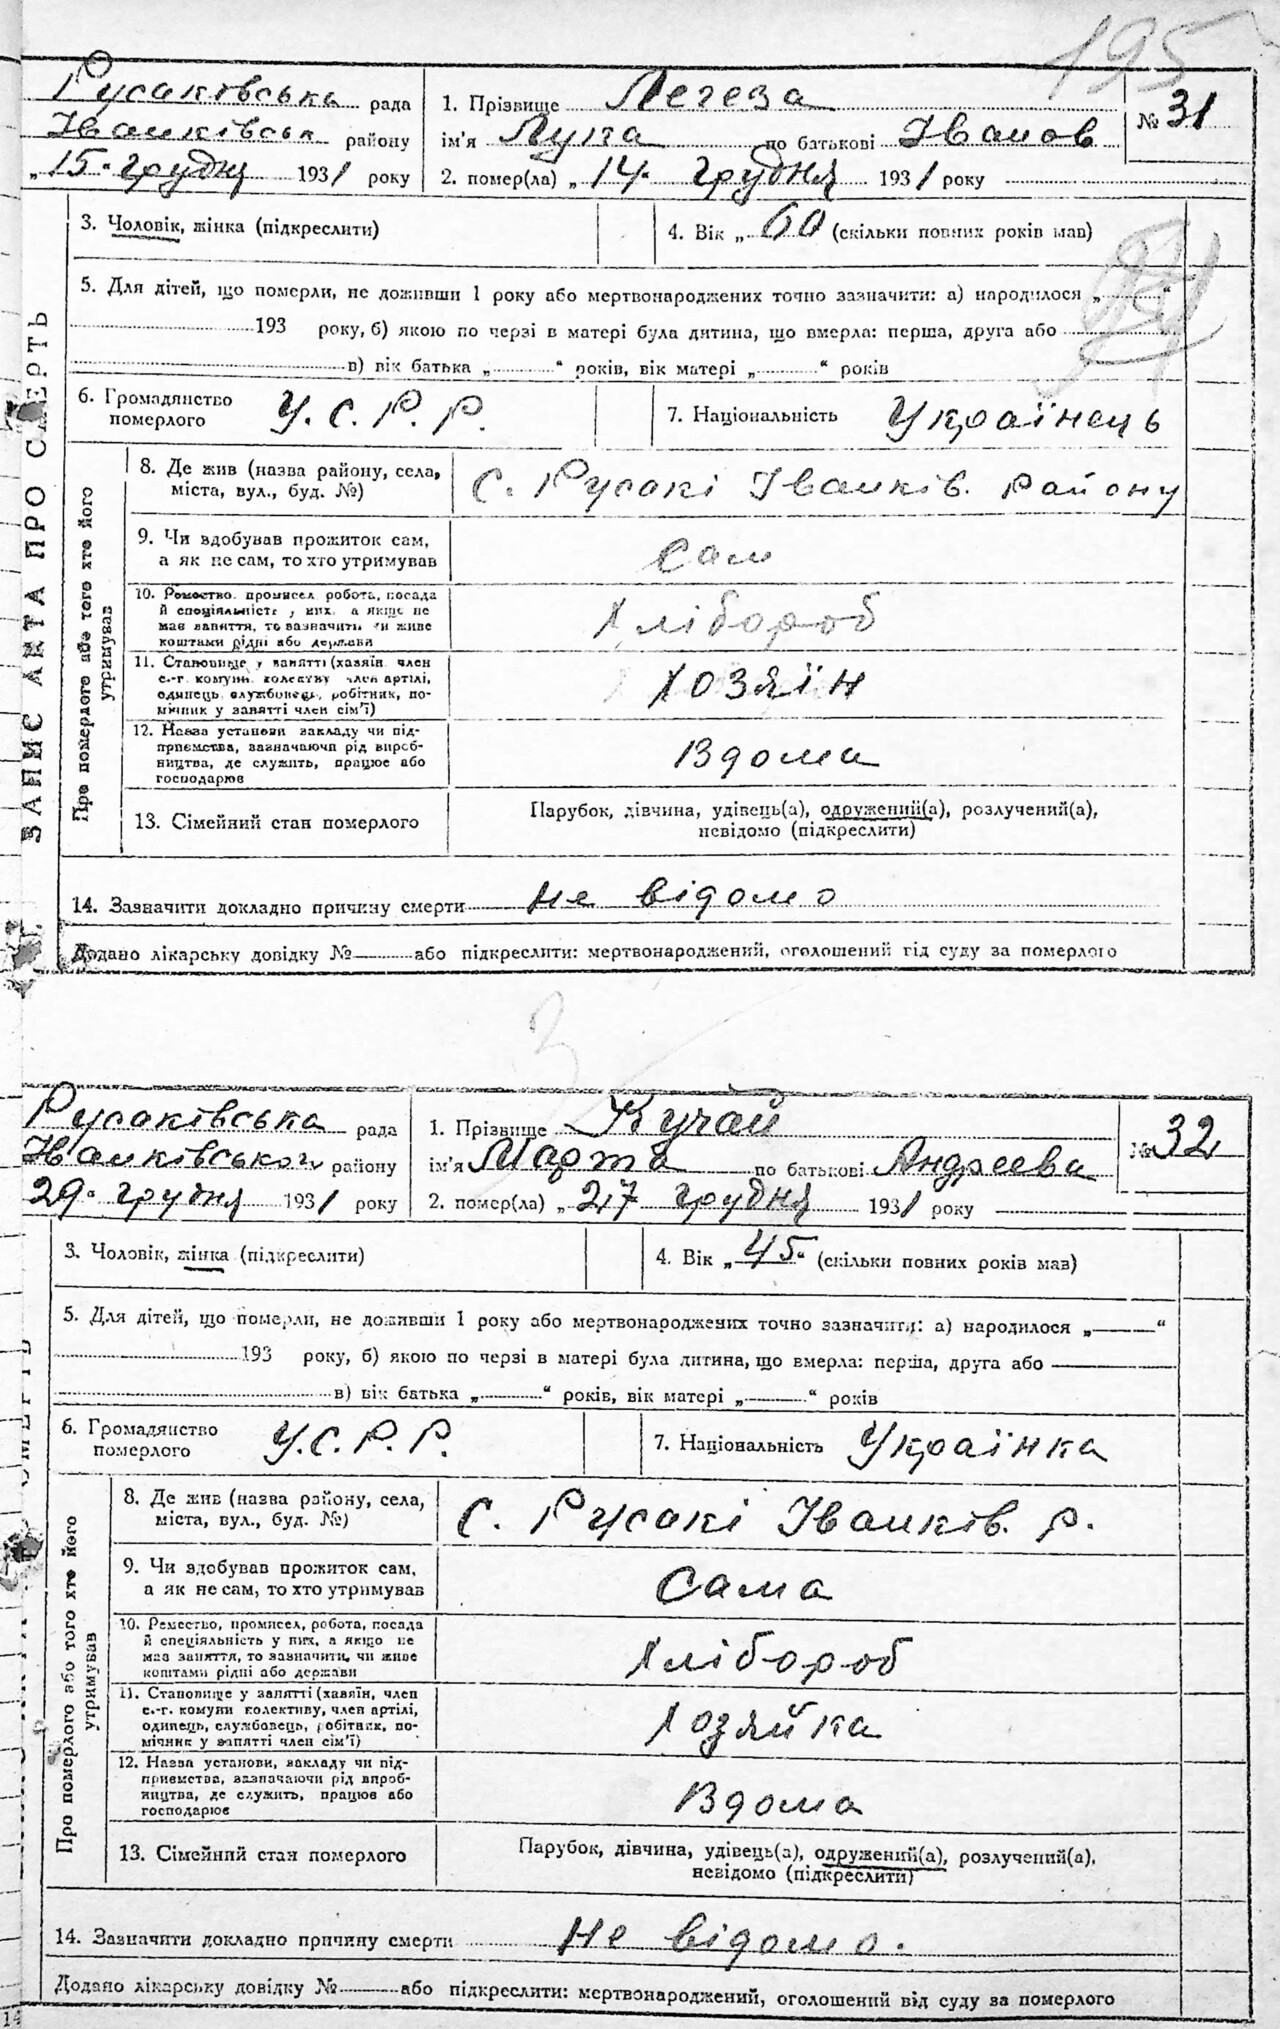 195
Русаківська рада
Іванківськ району
„15" грудня 1931 року
1. Прізвище Легеза
ім'я Лука по батькові Іванов
2. помер(ла) „14" грудня 1931 року
№ 31
ЗАПИС АКТА ПРО СМЕРТЬ
3. Чоловік, жінка (підкреслити)
4. Вік „60 (скільки повних років мав)
5. Для дітей, що померли, не доживши 1 року або мертвонароджених точно зазначити: а) народилося „ “
193 року, б) якою по черзі в матері була дитина, що вмерла: перша, друга або
в) вік батька „ “ років, вік матері „ “ років
6. Громадянство померлого У.С.Р.Р.
7. Національність Українець
Про померлого або того хто його утримував
8. Де жив (назва району, села,
міста, вул., буд. №)
с. Русакі Іванків. району
9. Чи вдобував прожиток сам,
а як не сам, то хто утримував
сам
10. Ремество, промисел, робота, посада
й спеціяльність у них, а якщо не
має заняття, то зазначити, чи живе
коштами рідні або держави
Хлібороб
11. Становище у занятті (хазяїн, член
с.-г. комуни, колективу, член артілі,
одинець, службовець, робітник, по-
мічник у занятті член сім'ї)
Хозяїн
12. Назва установи, закладу чи під-
приємства, зазначаючи рід вироб-
ництва, де служить, працює або
господарює
Вдома
13. Сімейний стан померлого
Парубок, дівчина, удівець(а), одружений(а), розлучений(а),
невідомо (підкреслити)
14. Зазначити докладно причину смерти не відомо
Додано лікарську довідку № або підкреслити: мертвонароджений, оголошений від суду за померлого
3
Русаківська рада
Іванківського району
29" грудня 1931 року
1. Прізвище Кучай
ім'я Марта по батькові Андреева
2. помер(ла) „27 грудня 1931 року
№ 32
3. Чоловік, жінка (підкреслити)
4. Вік „45" (скільки повних років мав)
5. Для дітей, що померли, не доживши 1 року або мертвонароджених точно зазначити: а) народилося „ “
193 року, б) якою по черзі в матері була дитина, що вмерла: перша, друга або
в) вік батька „ “ років, вік матері „ “ років
6. Громадянство померлого У.С.Р.Р.
7. Національність Українка
Про померлого або того хто його утримував
8. Де жив (назва району, села,
міста, вул., буд. №)
с. Русакі Іванків. р.
9. Чи вдобував прожиток сам,
а як не сам, то хто утримував
Сама
10. Ремество, промисел, робота, посада
й спеціяльність у них, а якщо не
має заняття, то зазначити, чи живе
коштами рідні або держави
Хлібороб
11. Становище у занятті (хазяїн, член
с.-г. комуни колективу, член артілі,
одинець, службовець, робітник, по-
мічник у занятті член сім'ї)
Хозяйка
12. Назва установи, закладу чи під-
приємства, зазначаючи рід вироб-
ництва, де служить, працює або
господарює
Вдома
13. Сімейний стан померлого
Парубок, дівчина, удівець(а), одружений(а), розлучений(а),
невідомо (підкреслити)
14. Зазначити докладно причину смерти Не відомо.
Додано лікарську довідку № або підкреслити: мертвонароджений, оголошений від суду за померлого
14